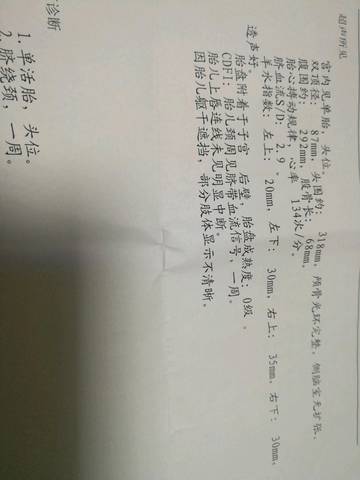 超声所见
宫内见单胎，头位。
双顶径： 87mm，头围约： 318mm，颅骨光环完整，侧脑室无扩张，
腹围约： 292mm，股骨长： 68mm。
胎心搏动规律，心率 134次/分。
脐血流S/D：2.9 。
羊水指数：左上： 20mm，左下： 30mm，右上： 35mm，右下： 30mm，
透声好
胎盘附着于子宫 后壁，胎盘成熟度：0级 。
CDFI：胎儿颈周见脐带血流信号，一周。
胎儿上唇连线未见明显中断。
因胎儿躯干遮挡，部分肢体显示不清晰。
诊断
1. 单活胎，头位。
2. 脐绕颈，一周。